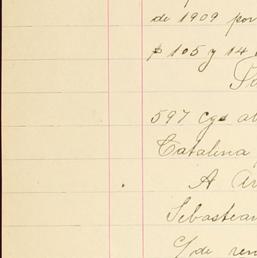 de 1909 por
$105 y 14
597 Cgs
Catalina
A
Sebastean
C/de ren